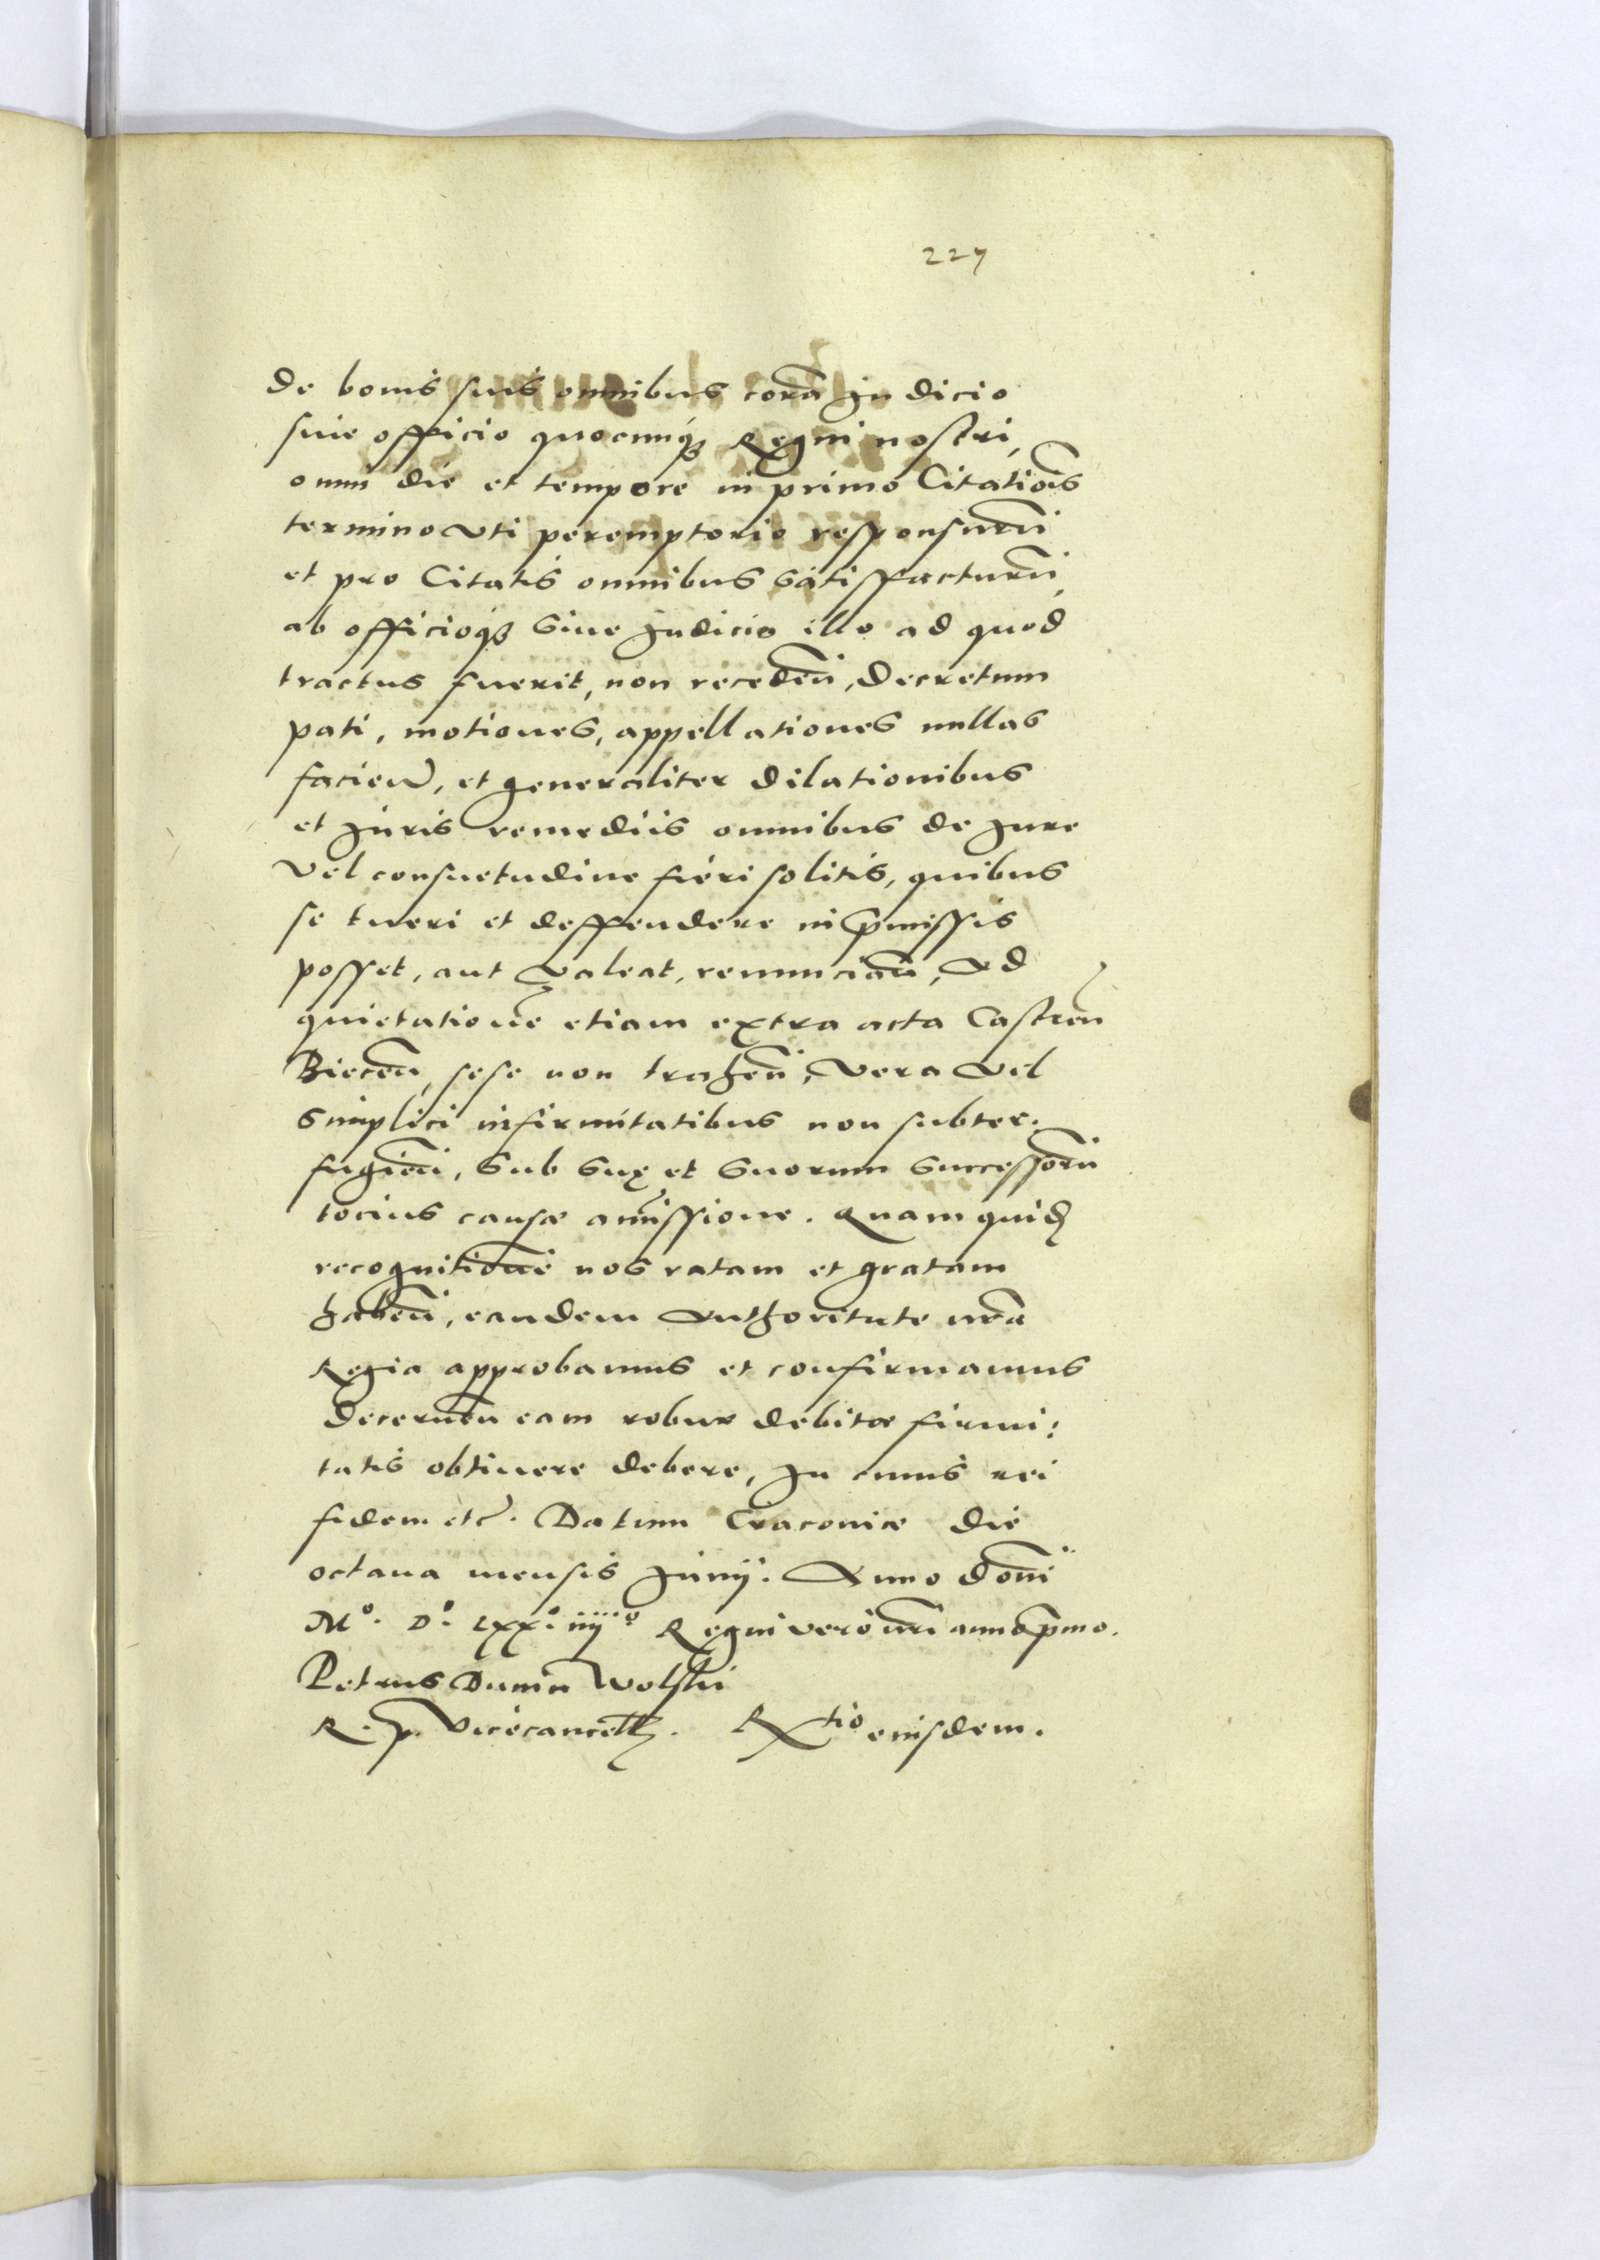 227
de bonis suis omnibus corã Judicio
siue officio quocunq3 Regni nostri,
omni die et tempore in primo Citatiõis
termino vti peremptorio responsurũ
et pro Citatis omnibus satisfacturũ,
ab officioq3 siue Judicio illo ad quod
tractus fuerit, non recedeñ, decretum
pati, motiones, appellationes nullas
facieñ, et generaliter dilationibus
et Juris remediis omnibus de Jure
vel consuetudine fieri solitis, quibus
se tueri et deffendere in p̃missis
posset, aut valeat, renunciañ, Ad
quietationẽ etiam extra acta Castreñ
Bieceñ, sese non traheñ, vera vel
simplici infirmitatibus non subter-
fugieñ, sub suę et suorum successorũ
tocius causæ amissione. Quam quid
recognitionẽ nos ratam et gratam
habeñ, eandem Authoritate nr̃a
Regia approbamus et confirmamus
decerneñ eam robur debitæ firmi:
tatis obtinere debere, In cuius rei
fidem etc̃. Datum Cracouiæ die
octaua mensis Junij. Anno dõni
Mº. Dº. Lxxº. iiijº Regni vero nr̃i anno p̃mo.
Petrus Dunin Wolski
R. p. Vicecancell. Rtio eiusdem.